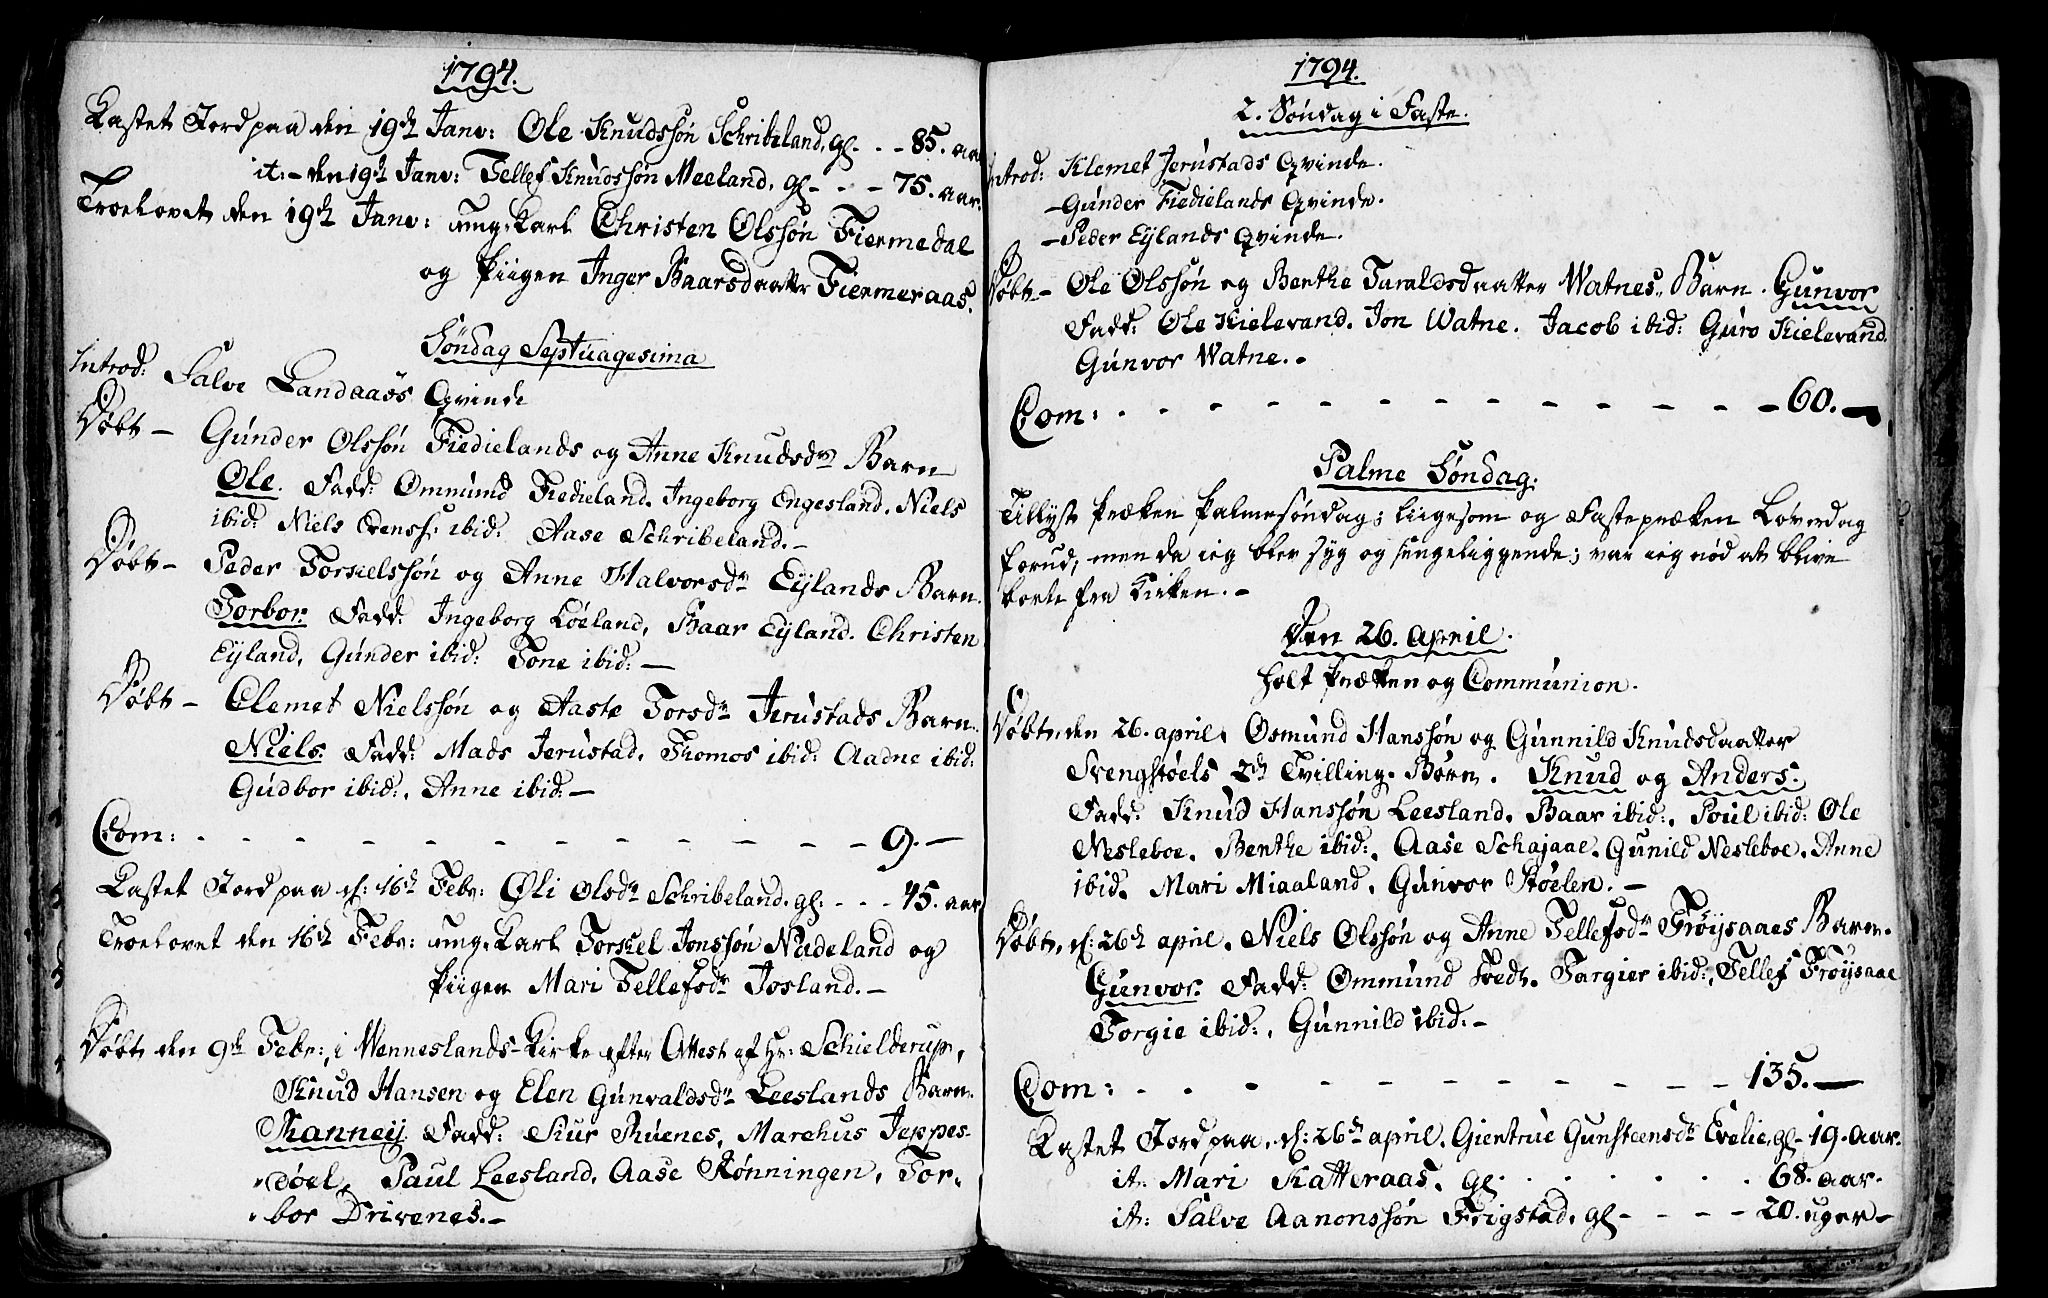 1794.
Kastet Jord paa den 19de Janv: Ole Knudssøn Schribeland, gl - - - 85. aar
it: - den 19de Janv: Tellef Knudssøn Meeland, gl - - - 75. aar.
Troelovet den 19de Janv: ung.Karl Christen Olssøn Fiermedal
og Piigen Inger Baarsdaatter Fiermeraas.
Søndag Septuagesima
Introd: Salve Landaaes Qvinde
Døbt - Gunder Olssøn Fiedielands og Anne Knudsdr Barn
Ole. Fadd: Ommund Fiedieland. Ingeborg Engesland. Niels
ibid: Niels Evenss: ibid: Aase Schribeland. -
Døbt - Peder Torkelssøn og Anne Halvorsdr Eylands Barn.
Torbor. Fadd: Ingeborg Løeland, Baar Eyland. Christen
Eyland, Gunder ibid: Tone ibid: -
Døbt - Clemet Nielssøn og Aaste Torsdr Jerustads Barn.
Niels. Fadd: Mads Jerustad. Thomos ibid: Aadne ibid:
Gudbor ibid:. Anne ibid: -
Com: - - - - - - - - - - - - 9. -
Kastet Jord paa d: 16de Febr: Øli Olsdr Schribeland. gl: - - - 45. aar
Troelovet den 16de Febr: ung.Karl Torkel Jonssøn Nudeland og
Piigen Mari Tellefsdr Josland. -
Døbt den 9de Febr:, i Wenneslands-Kirke efter Attest af Hr: Schielderup,
Knud Hansen og Elen Gunvaldsdr Leeslands Barn.
Ranney. Fadd: Siur Ruenes, Marchus Jeppes-
døel, Paul Leesland, Aase Rønningen, Tor-
bor Drivenes. -
1794.
2. Søndag i Faste.
Introd: Klemet Jerustads Qvinde.
- Gunder Fiedielands Qvinde.
- Peder Eylands Qvinde.
Døbt - Ole Olssøn og Berthe Taraldsdaatter Watnes Barn. Gunvor
Fadd: Ole Kielevand. Jon Watne. Jacob ibid: Guro Kielevand.
Gunvor Watne. -
Com: - - - - - - - - - - - - 60. -
Palme Søndag.
Tillyst Præken Palmesøndag; liigesom og Fastepræken Løverdag
forud, men da jeg blev syg og sengeliggende; var jeg nød at blive
borte fra Kirken. -
Den 26. April.
holt Præken og Communion.
Døbt, den 26. april. Osmund Hanssøn og Gunnild Knudsdaatter
Svengstøels 2de Tvilling-Børn. Knud og Anders.
Fadd: Knud Hanssøn Leesland. Baar ibid:. Poul ibid: Ole
Nesleboe. Berthe ibid:. Aase Schajaae. Gunild Nesleboe. Anne
ibid. Mari Miaaland. Gunvor Støelen. -
Døbt, d: 26de april. Niels Olssøn og Anne Tellefsdr Frøysaaes Barn.
Gunvor. Fadd: Ommund Foedt. Targier ibid:, Tellef Frøysaae
Torgie ibid:. Gunnild ibid: -
Com: - - - - - - - - - - - 135. -
Kastet Jord paa, d: 26de april, Gientrue Gunsteensdr Evelie, gl - 19. aar.
it: Mari Katteraas. gl. . . . . . . 68. aar.
it: Salve Aanonssøn Frigstad. gl - - - - 20. uger -